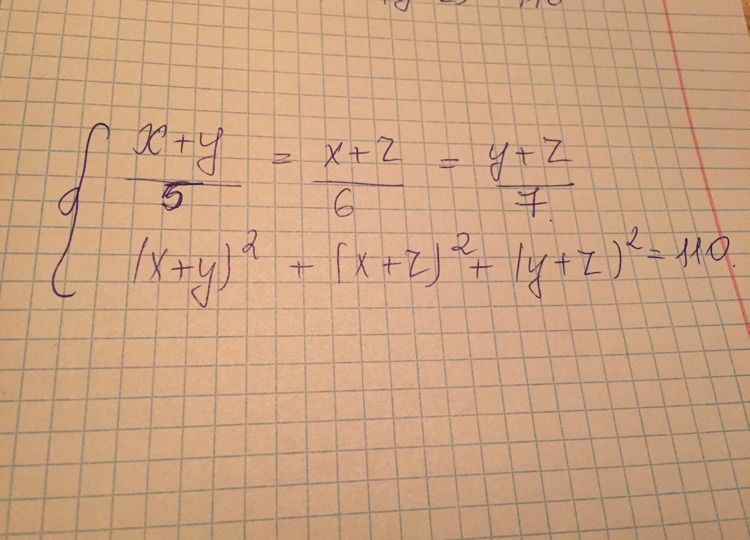 { x+y/5 = x+z/6 = y+z/7
(x+y)² + (x+z)² + (y+z)² = 110.